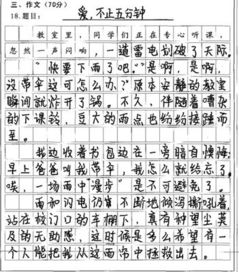 三、作文（70分）
18.题目：爱,不止五分钟
教室里，同学们正在专心听课，
忽然一声闷响，一道雷电划破了天际。
“快要下雨了吧。”“是啊，是啊，
没带伞这可怎么办？”原本安静的教室
瞬间就炸开了锅。不久，伴随着嘈杂
的下课铃，豆大的雨点也纷纷接踵而
至。
我边收着书包边在一旁暗自懊悔：
早上爸爸叫我带伞，我怎么就给忘了。
唉，一场雨中“漫步”是不可避免了。
雨和闪电仍有不断地倾泻嘶吼着，
站在校门口的车棚下，真有种望尘莫
及的无助感，这时候是多么希望有一
个人能把我从这雨帘中拯救出去。